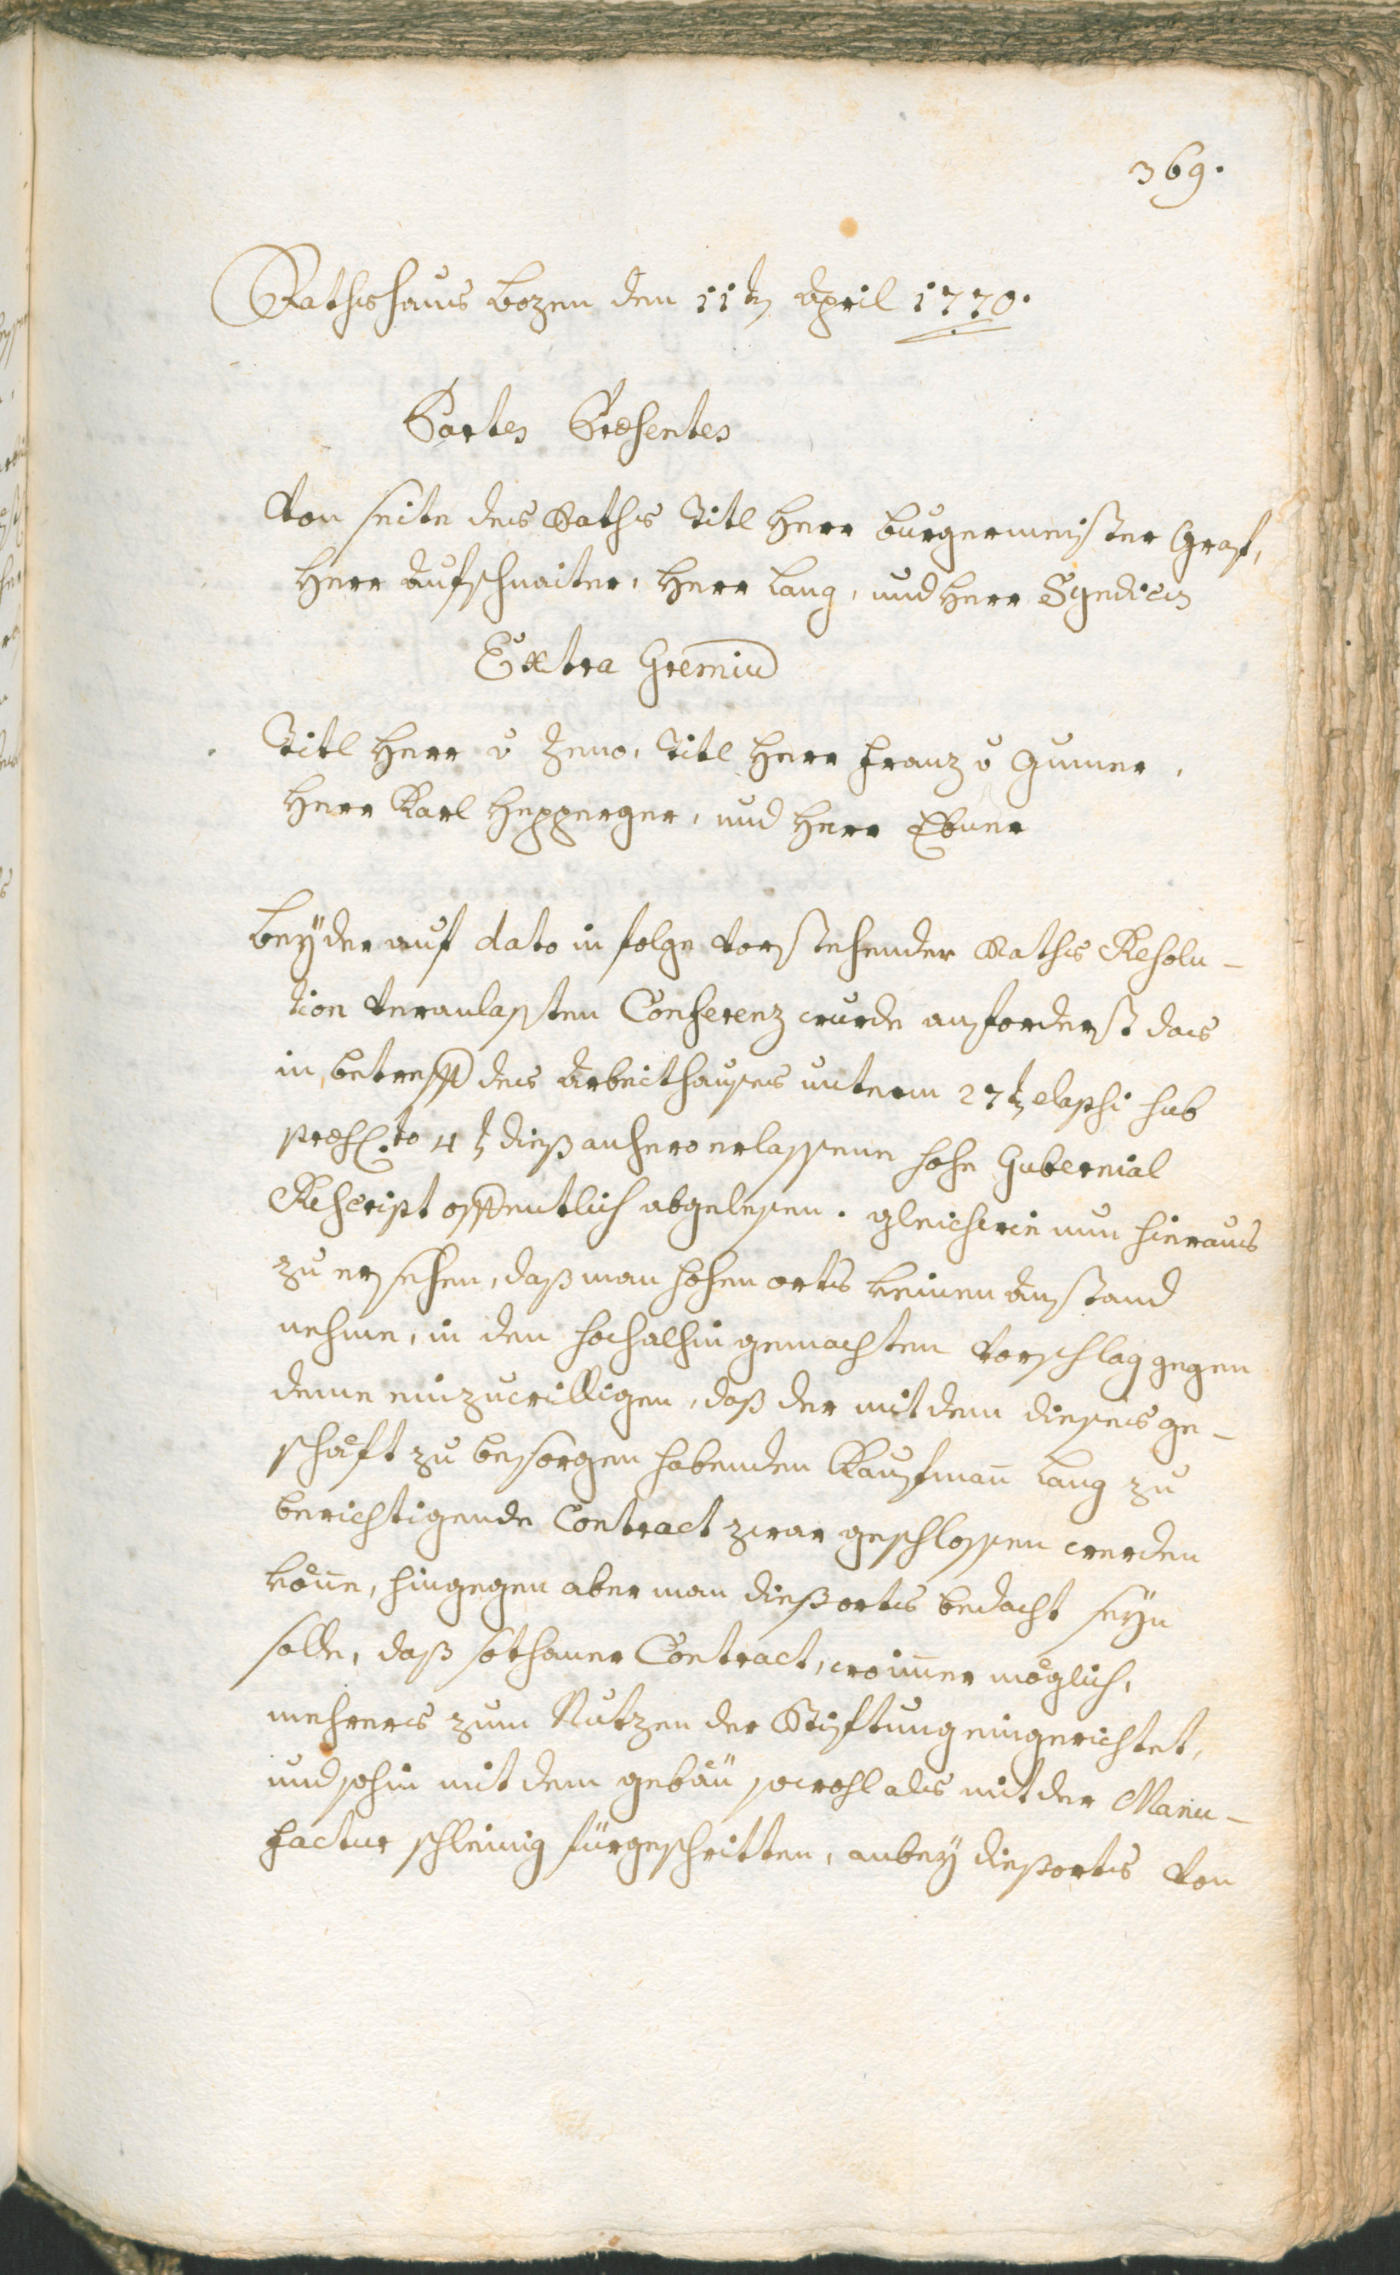 369.
Rathshaus Bozen den 11t﻿en April 1770.
Partes Præsentes
Von seite des Raths Titl Herr Burgermeister Graf,
Herr Aufschnaiter, Herr Lang, und Herr Syndicus
Extra Gremiu
Titl Herr v Zeno, Titl Herr Franz v Gumer,
Herr Karl Hepperger, und Herr Ebner
Bey der auf dato in folge vorstehender Raths Resolu-
tion veranlaßten Conferenz wurde anforderst das
in betreff des Arbeithauses unterm 27ten elapsi sub
præs. to 4ten dieß anhero erlassene hohe Gubernial
Rescript offentlich abgelesen. gleichwie nun hieraus
zu ersehen, daß man hohen orts keinen Anstand
nehme, in den hochalhin gemachten Vorschlag gegen
deme einzuwilligen, daß der mit dem dieses ge-
schäft zu besorgen habenden Kaufmann Lang zu
berichtigende Contract zwar geschlossen werden
könne, hingegen aber man dießorts bedacht seyn
solle, daß sothaner Contract, wo immer möglich,
mehrers zum Nutzen der Stiftung eingerichtet,
und sohin mit dem gebäu sowohl als mit der Manu-
factur schleinig fürgeschritten, anbey dießorts von